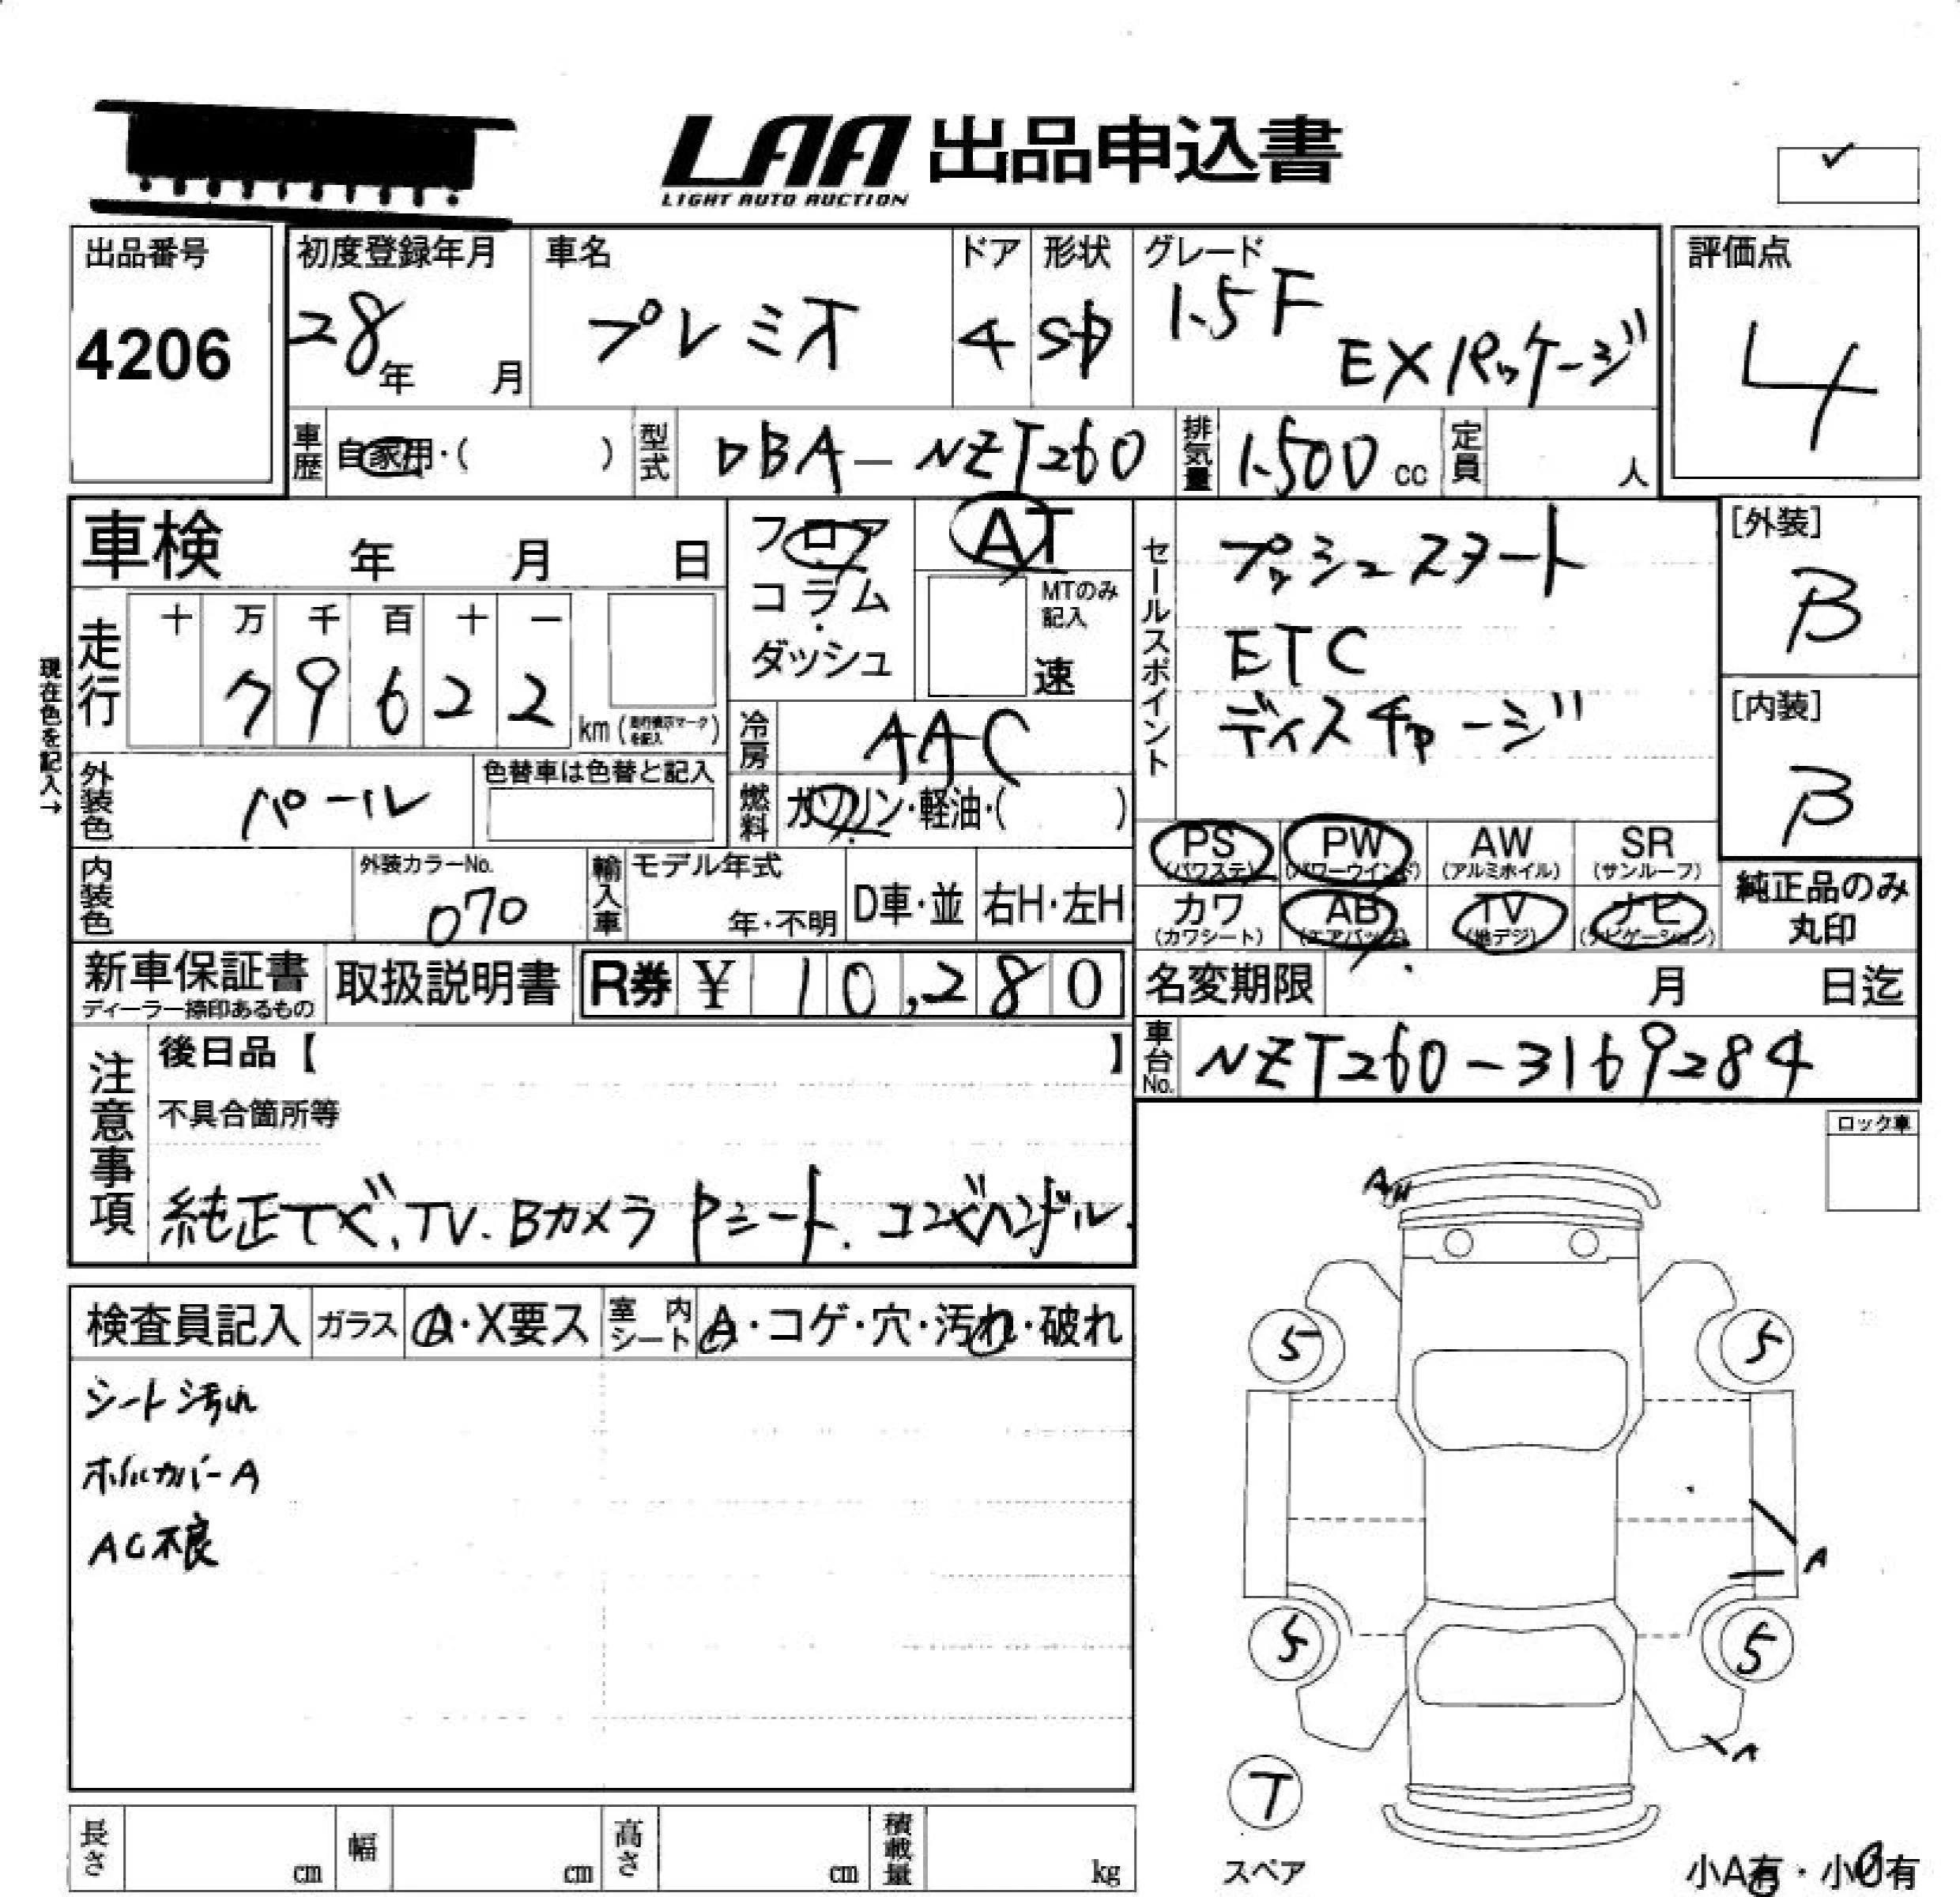 LAA 出品申込書
LIGHT AUTO AUCTION
出品番号
4206
初度登録年月
28年 月
車名
プレミオ
ドア
4
形状
SD
グレード
1.5F
EXパッケージ
評価点
4
車歴
自家用・( )
型式
DBA-NZT260
排気量
1500 cc
定員
人
車検 年 月 日
フロア・
コラム・
ダッシュ
AT
MTのみ
記入
速
セールスポイント
プッシュスタート
ETC
ディスチャージ
[外装]
B
[内装]
B
現在色を記入→
走行
十 万 千 百 十 一
7 9 6 2 2
km(走行横示マークを記入)
冷房
AAC
外装色
パール
色替車は色替と記入
燃料
ガソリン・軽油・( )
PS (パワステ)
PW (パワーウインド)
AW (アルミホイル)
SR (サンルーフ)
カワ (カワシート)
AB (エアバッグ)
TV (地デジ)
ナビ (ナビゲーション)
純正品のみ
丸印
内装色
外装カラーNo.
070
輸入車
モデル年式
年・不明
D車・並
右H・左H
新車保証書
ディーラー捺印あるもの
取扱説明書
R券 ¥ 10,280
名変期限 月 日迄
車台No.
NZT260-3169284
注意事項
後日品【 】
不具合箇所等
純正ナビ、TV.Bカメラ Pシート.コンビハンドル.
ロック車
検査員記入
ガラス
A・X要ス
室内シート
A・コゲ・穴・汚れ・破れ
シート汚れ
ホイルカバーA
AC不良
A
5
5
A
5
5
A
T
スペア
長さ cm
幅 cm
高さ cm
積載量 kg
小A有・小U有